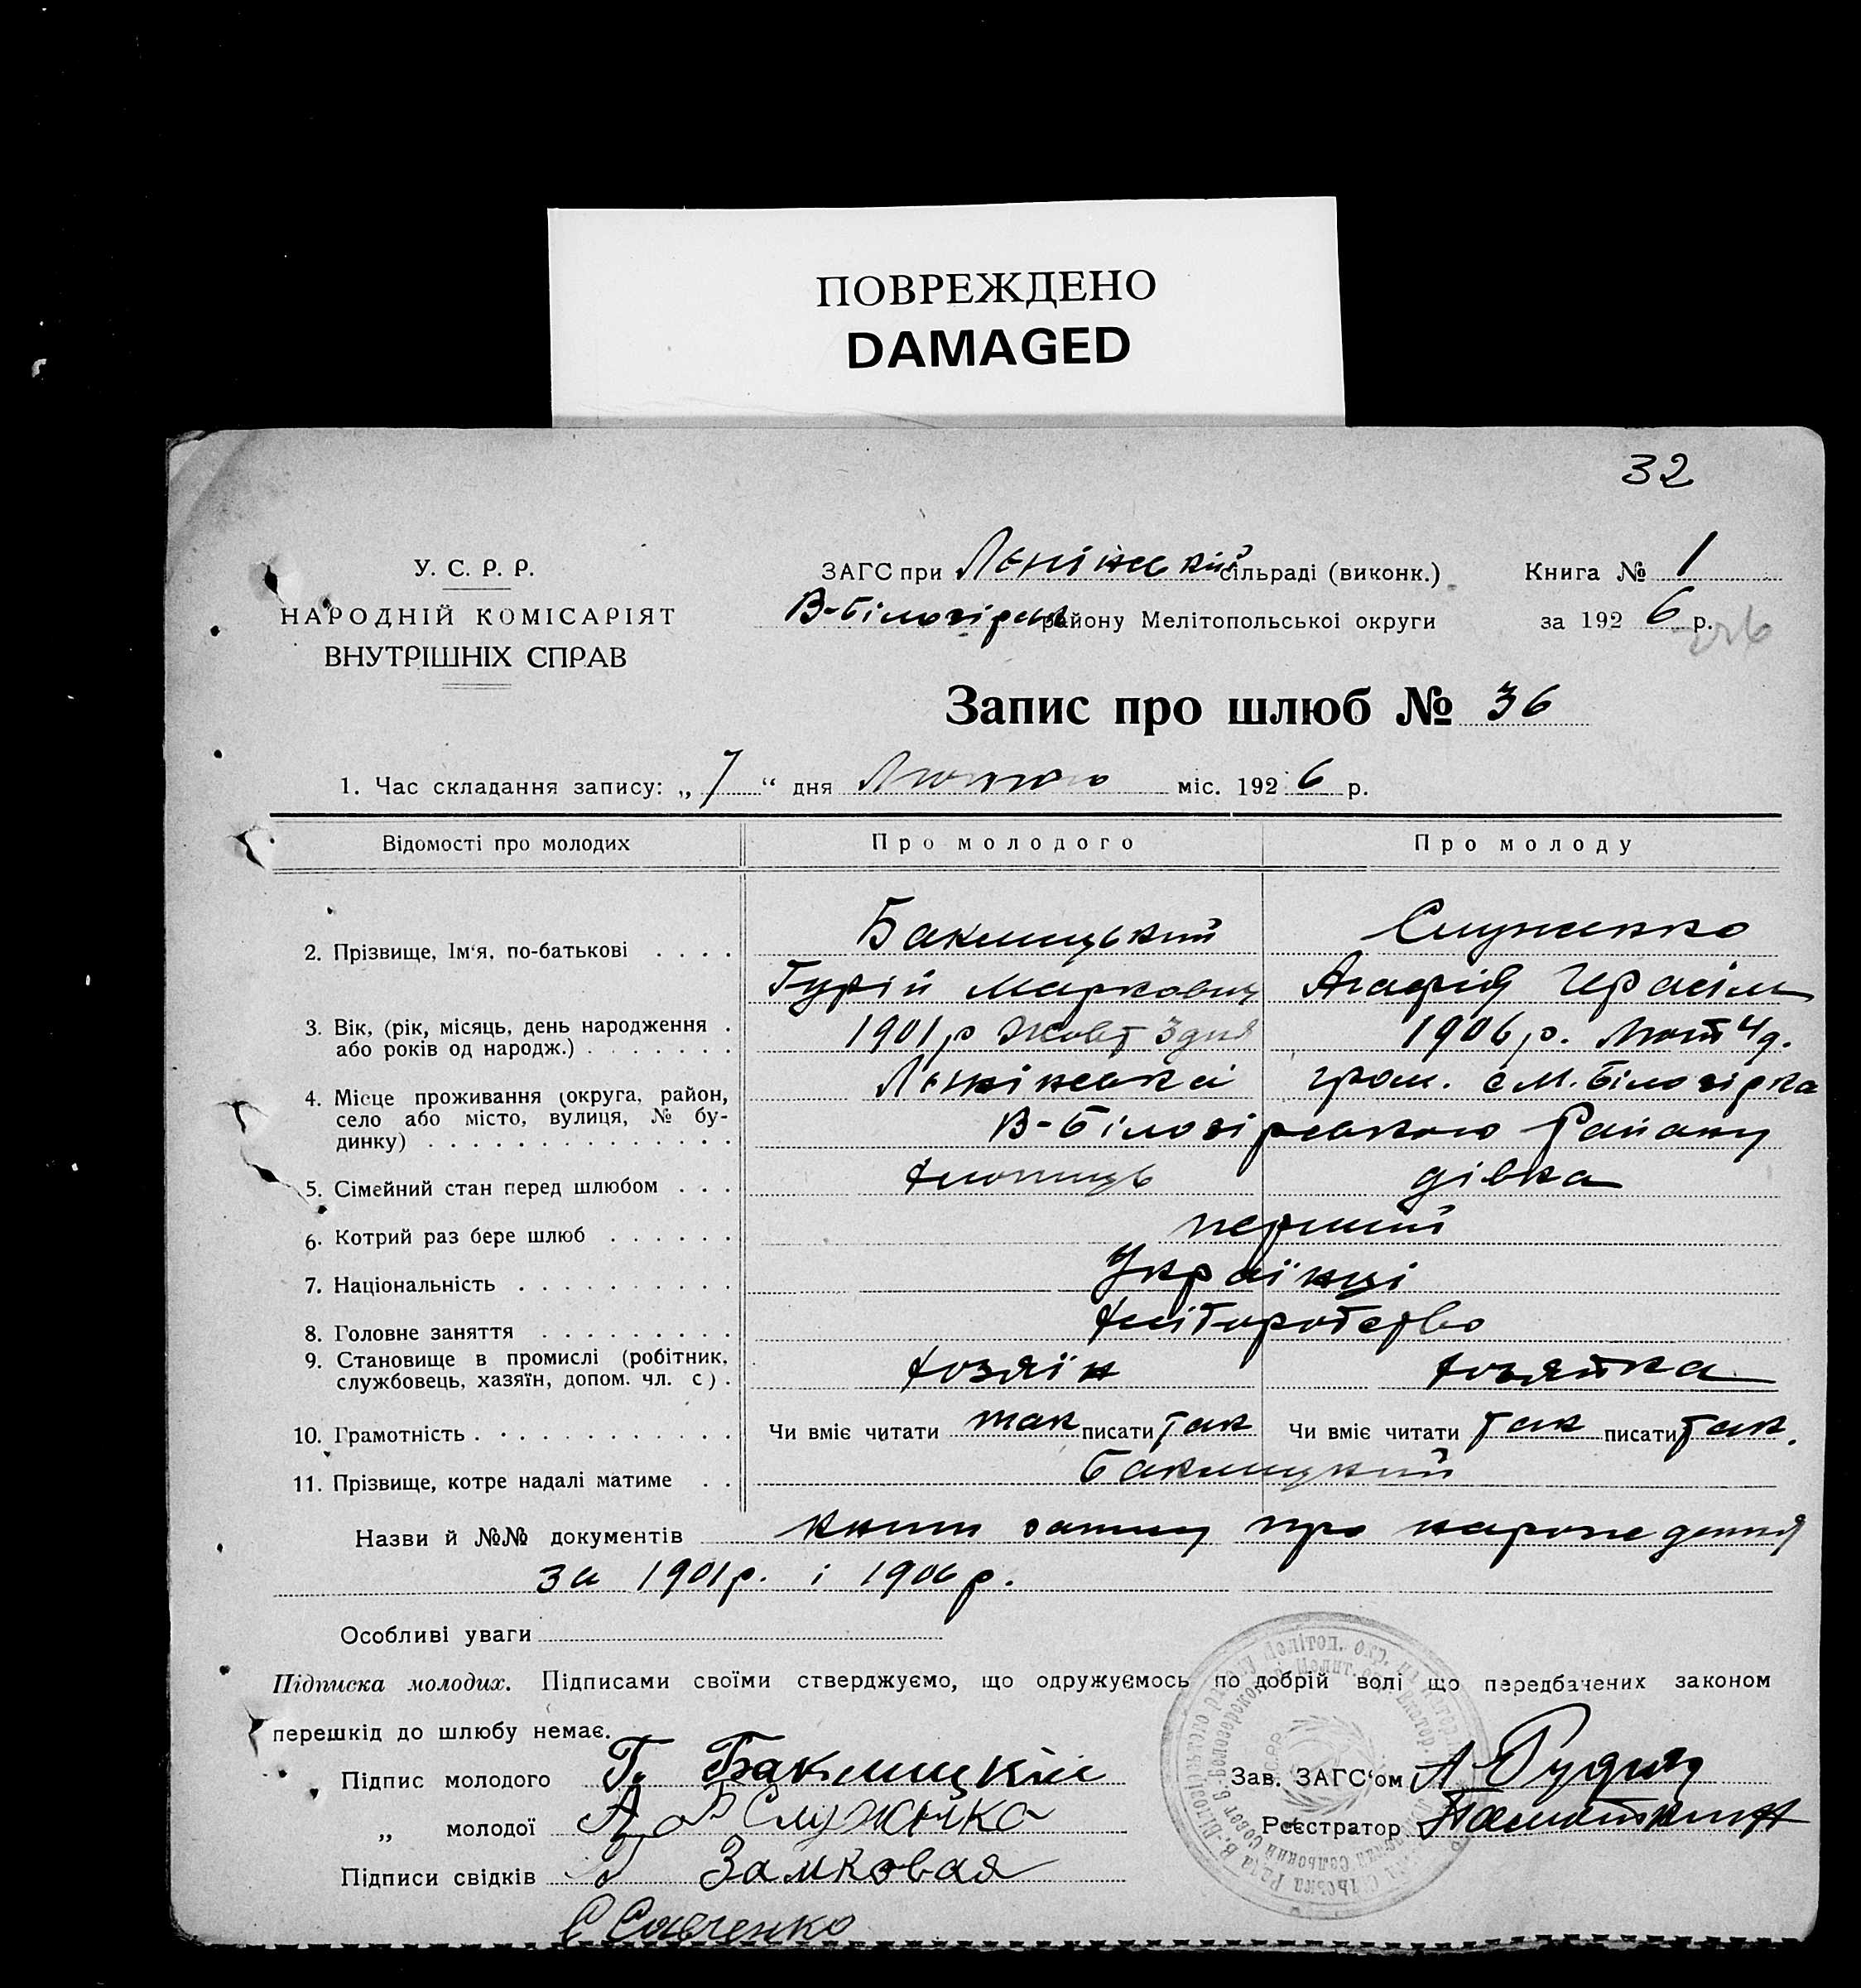 ПОВРЕЖДЕНО
DAMAGED
32
У. С. Р. Р.
НАРОДНІЙ КОМІСАРІЯТ
ВНУТРІШНІХ СПРАВ
ЗАГС при Ленінській сільраді (виконк.)
В-Білогірськ району Мелітопольської округи
Книга № 1
за 1926 р.
Запис про шлюб № 36
1. Час складання запису: „7“ дня Лютого міс. 1926 р.
Відомості про молодих
Про молодого
Про молоду
2. Прізвище, Ім'я, по-батькові . . . .
Баклицький
Служенко
Гурій Маркович
Агафія Герасім
3. Вік, (рік, місяць, день народження .
або років од народж.) . . . . . . .
1901 р Жовт 3 дня
1906 р. Лют 4 д.
4. Місце проживання (округа, район,
село або місто, вулиця, № бу-
динку) . . . . . . . . . . . . . .
Ленінська гром. с М. Білогірка
В-Білогірського Району
5. Сімейний стан перед шлюбом . . .
хлопець
дівка
6. Котрий раз бере шлюб . . . . . .
перший
7. Національність . . . . . . . . . .
Українці
8. Головне заняття . . . . . . . . .
хліборобство
9. Становище в промислі (робітник,
службовець, хазяїн, допом. чл. с) .
хозяїн
хозяйка
10. Грамотність . . . . . . . . . . . .
Чи вміє читати так писати так
Чи вміє читати так писати так.
11. Прізвище, котре надалі матиме . .
Баклицкий
Назви й №№ документів книги запису про народження
за 1901 р. і 1906 р.
Особливі уваги
Підписка молодих. Підписами своїми стверджуємо, що одружуємось по добрій волі що передбачених законом
перешкід до шлюбу немає.
Підпис молодого Г. Баклицкий
„ молодої Служенко
Підписи свідків Замковая
С Савченко
Зав. ЗАГС'ом А Рудич
Реєстратор